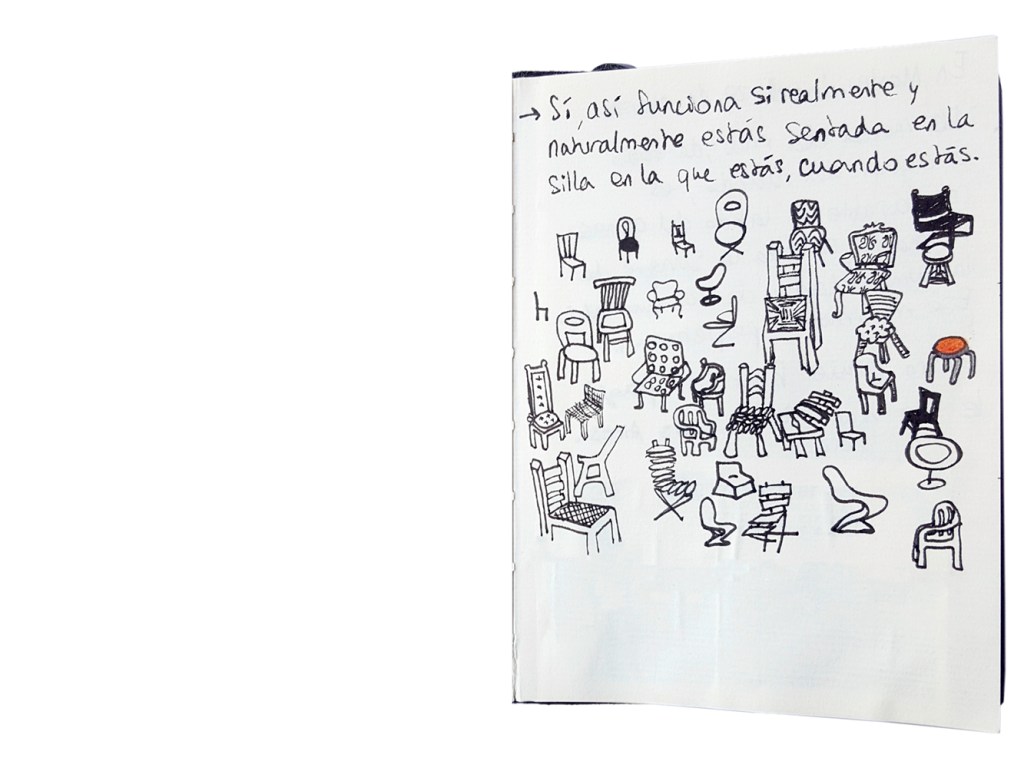 → Sí, así funciona si realmente y
naturalmente estás sentada en la
silla en la que estás, cuando estás.